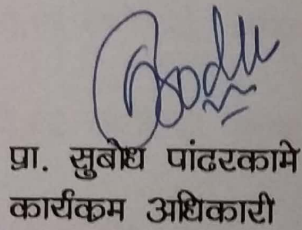 प्रा. सुबोध पांढरकामे
कार्यकम अधिकारी